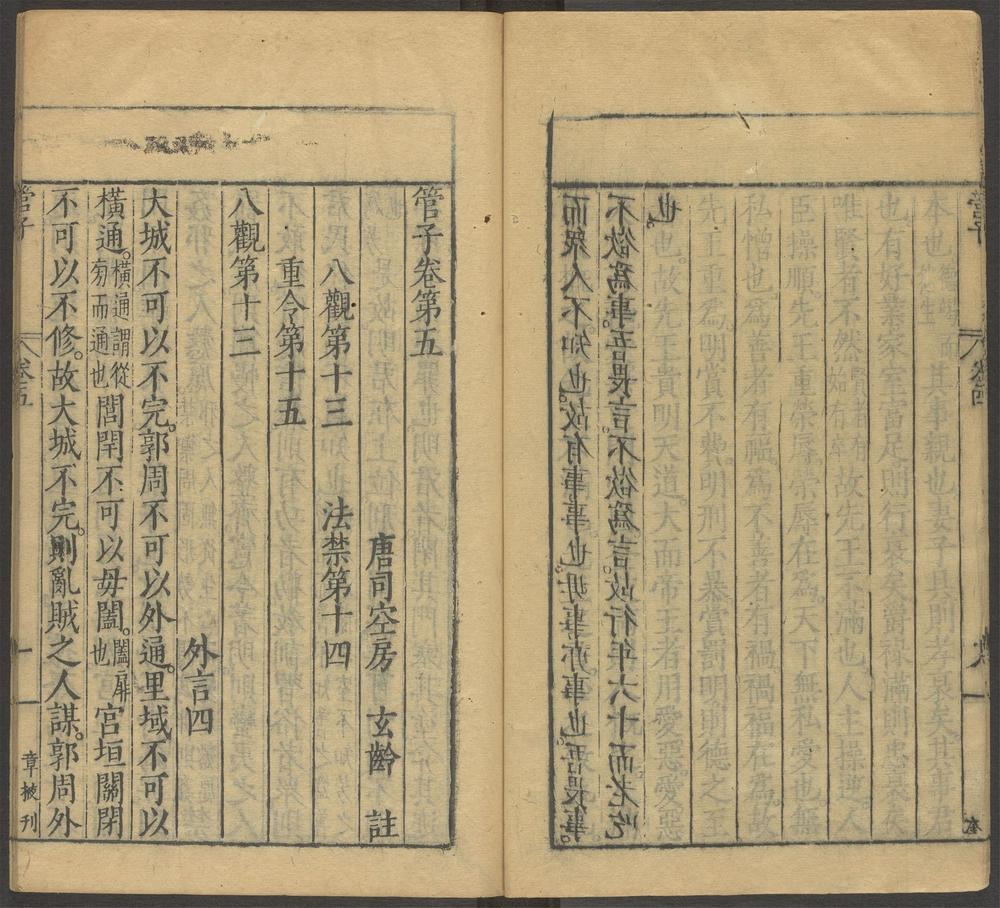 而其事親也妻子具則孝衰矣其事君
也有好業家室富足則行衰矣爵祿滿則忠衰矣
唯賢者不然故先王不滿也人主操逆人
臣操順先王重榮辱榮辱在爲天下無私愛也無
私憎也爲善者有福爲不善者有禍禍福在爲故
先王重爲明賞不費明刑不暴賞罰明則德之至
者也故先王貴明天道大而帝王者用愛惡愛惡
也。
不欲爲事。吾畏言。不欲爲言。故行年六十而老吃
而衆人不知也。故有事事也。毋事亦事也。吾畏事。
管子卷第五
唐司空房 玄齡 註
八觀第十三 法禁第十四
重令第十五
八觀第十三
外言四
大城不可以不完。郭周不可以外通。里域不可以
橫通。橫通謂從旁而通也閭閈不可以毋闔。闔扉也宮垣關閉
不可以不修。故大城不完。則亂賊之人謀。郭周外
管子 卷五 一 章掖刊